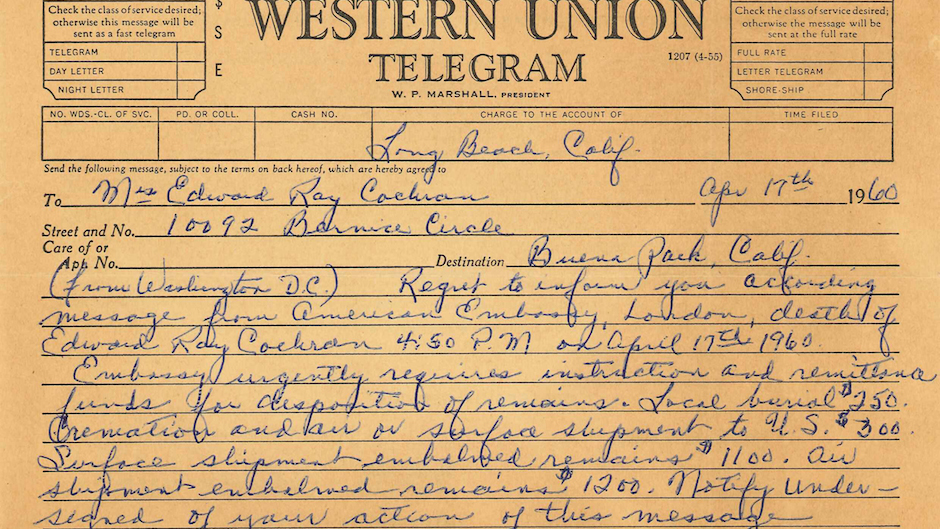 Check the class of service desired;
otherwise this message will be
sent as a fast telegram
TELEGRAM
DAY LETTER
NIGHT LETTER
$
S
E
WESTERN UNION
TELEGRAM
1207 (4-55)
W. P. MARSHALL, PRESIDENT
Check the class of service desired;
otherwise the message will be
sent at the full rate
FULL RATE
LETTER TELEGRAM
SHORE-SHIP
NO. WDS.-CL. OF SVC. PD. OR COLL. CASH NO. CHARGE TO THE ACCOUNT OF TIME FILED
Long Beach, Calif.
Send the following message, subject to the terms on back hereof, which are hereby agreed to
To Mrs Edward Ray Cochran Apr 17th 1960
Street and No. 10092 Bernice Circle
Care of or
Apt. No. Destination Buena Park, Calif.
(From Washington D.C.) Regret to inform you according
message from American Embassy, London, death of
Edward Ray Cochran 4:50 P.M on April 17th 1960.
Embassy urgently requires instruction and remittance
funds for disposition of remains. Local burial $250.
Cremation and air or surface shipment to U.S. $300.
Surface shipment embalmed remains $1100. Air
shipment embalmed remains $1200. Notify under-
signed of your action of this message